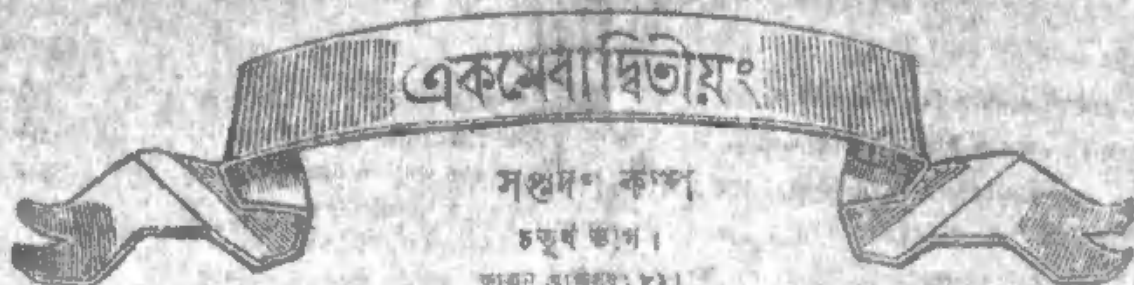 একমেবাদ্বিতীয়ং
সপ্তদশ কল্প
চতুর্থ ভাগ।